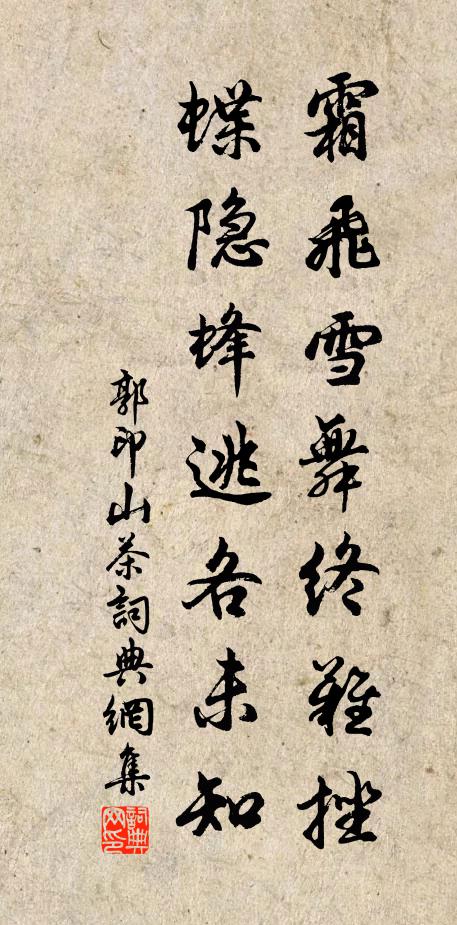 霜飛雪舞終難挫
蝶隐蜂逃各未知
郭印山茶詞典網集
詞典网印